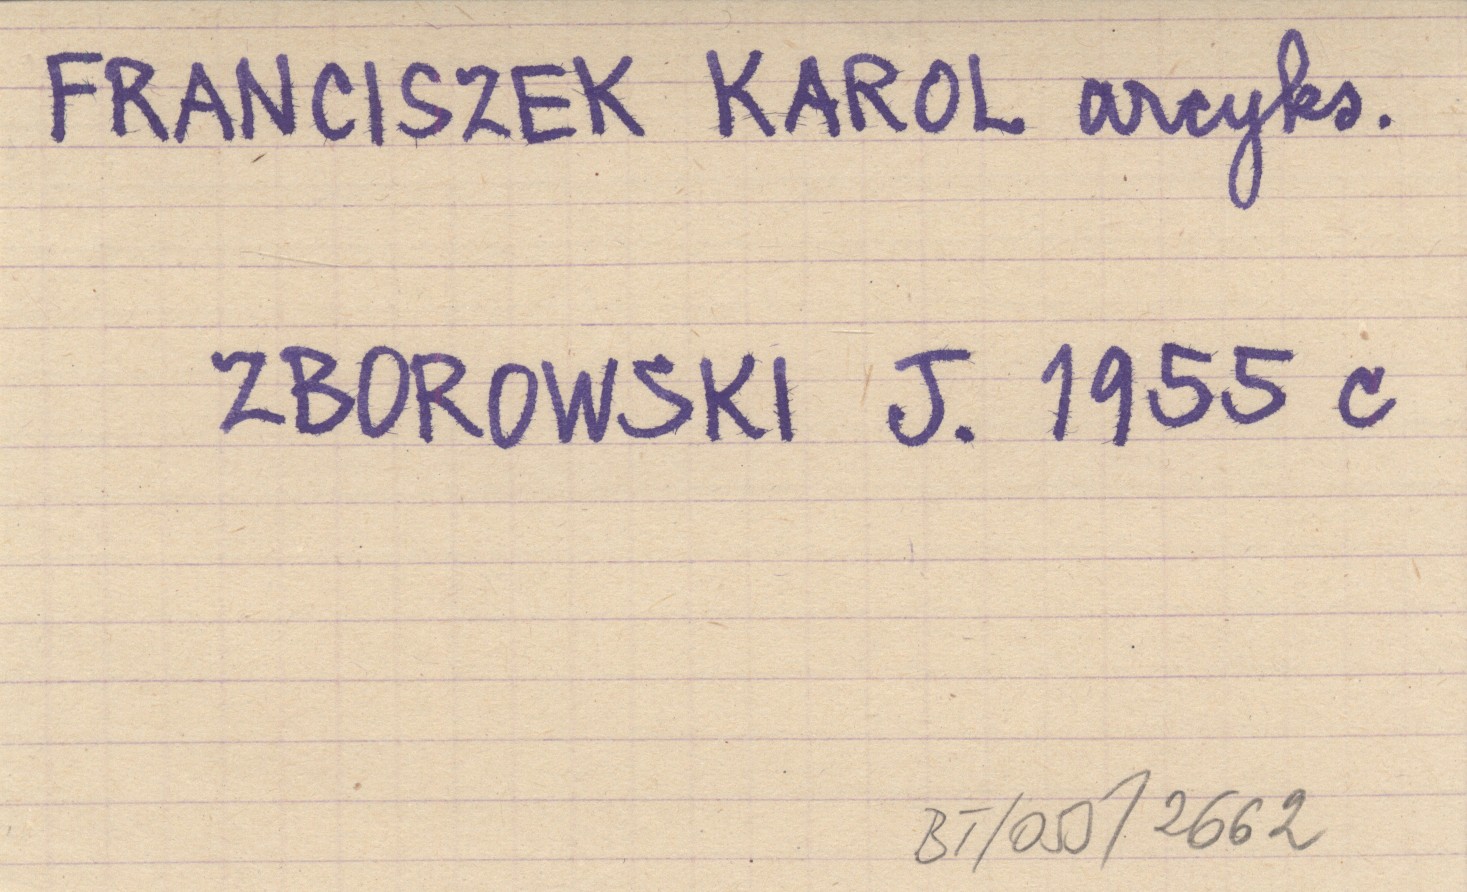 FRANCISZEK KAROL arcyks.
ZBOROWSKI J. 1955 c
BT/OSO/2662